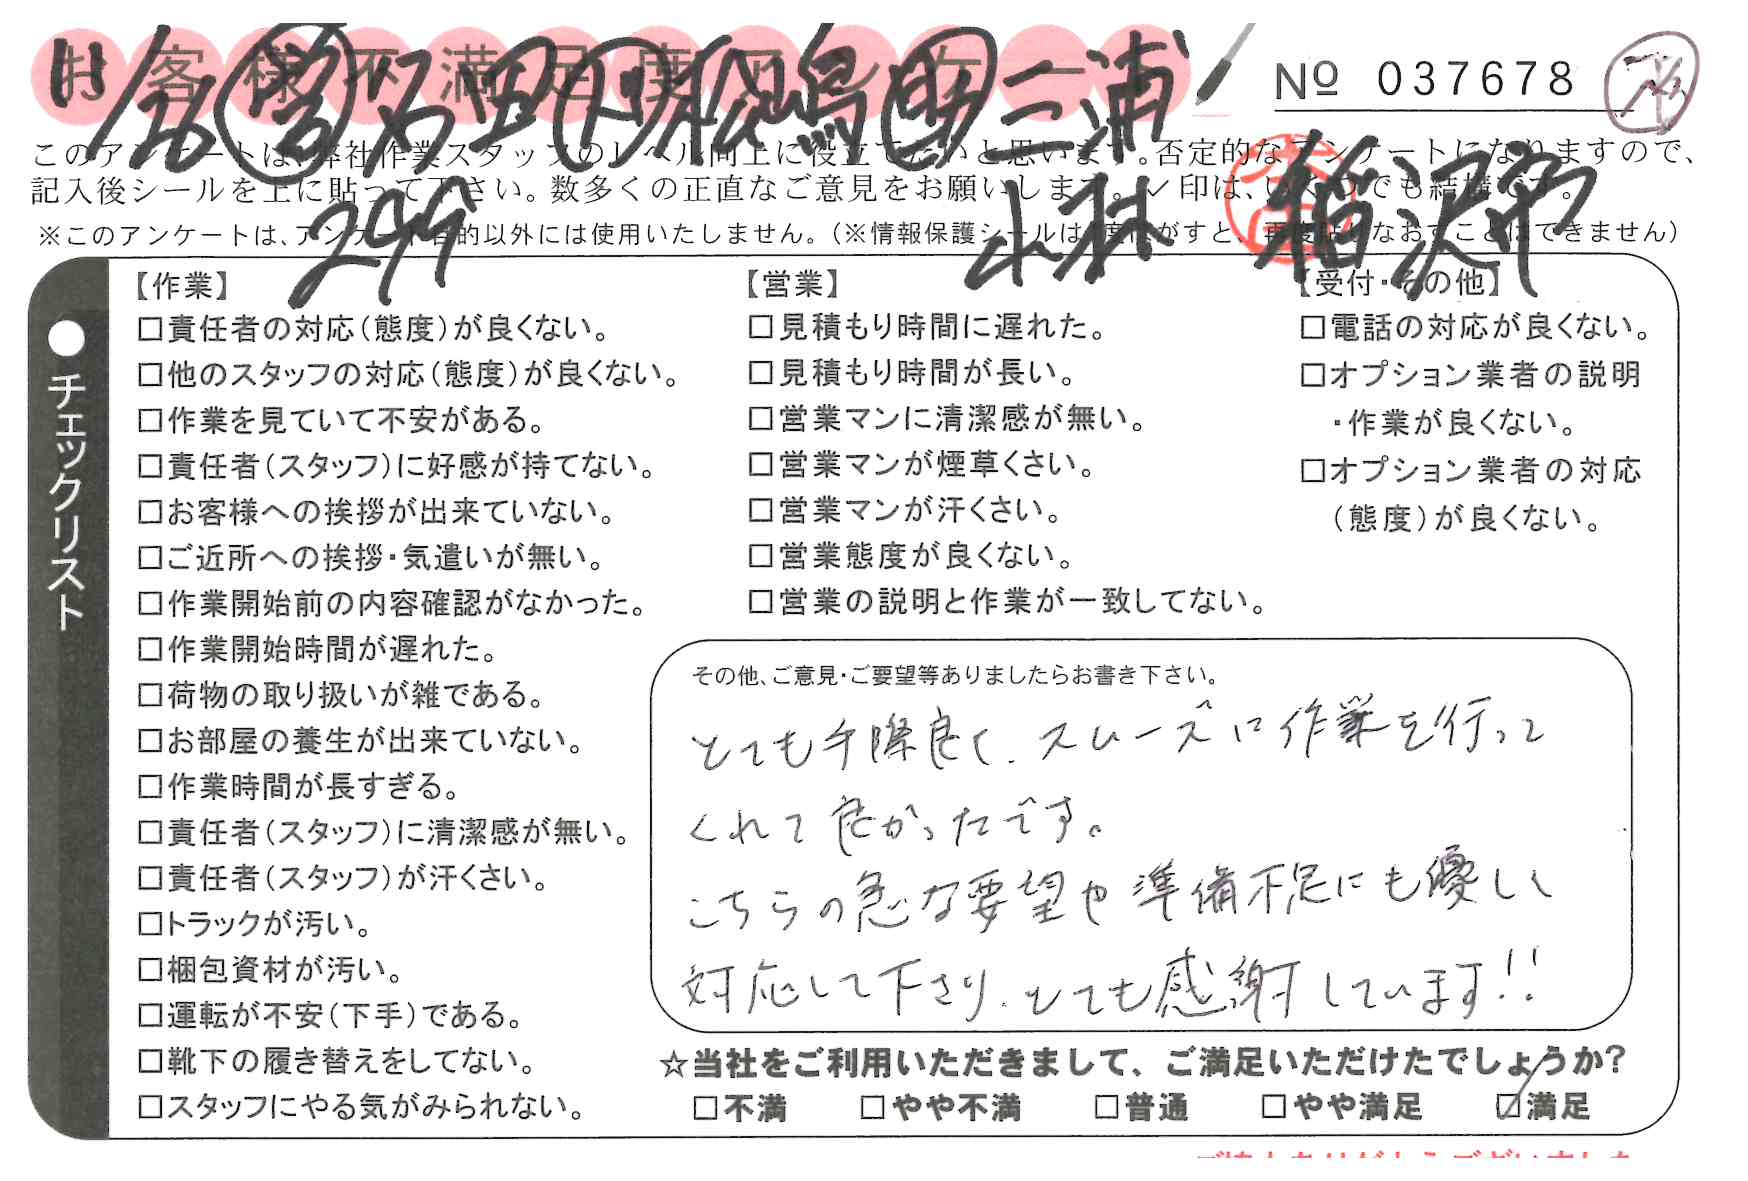 お客様不満足度アンケート
11/26 営 石田 下 松嶋 助 三浦 小林
299
稲沢市
Nº 037678
このアンケートは、弊社作業スタッフのレベル向上に役立てたいと思います。否定的なアンケートになりますので、
記入後シールを上に貼って下さい。数多くの正直なご意見をお願いします。✓印は、いくつでも結構です。
※このアンケートは、アンケート目的以外には使用いたしません。（※情報保護シールは1度はがすと、再度貼りなおすことはできません）
●チェックリスト
【作業】
□責任者の対応（態度）が良くない。
□他のスタッフの対応（態度）が良くない。
□作業を見ていて不安がある。
□責任者（スタッフ）に好感が持てない。
□お客様への挨拶が出来ていない。
□ご近所への挨拶・気遣いが無い。
□作業開始前の内容確認がなかった。
□作業開始時間が遅れた。
□荷物の取り扱いが雑である。
□お部屋の養生が出来ていない。
□作業時間が長すぎる。
□責任者（スタッフ）に清潔感が無い。
□責任者（スタッフ）が汗くさい。
□トラックが汚い。
□梱包資材が汚い。
□運転が不安（下手）である。
□靴下の履き替えをしてない。
□スタッフにやる気がみられない。
【営業】
□見積もり時間に遅れた。
□見積もり時間が長い。
□営業マンに清潔感が無い。
□営業マンが煙草くさい。
□営業マンが汗くさい。
□営業態度が良くない。
□営業の説明と作業が一致してない。
【受付・その他】
□電話の対応が良くない。
□オプション業者の説明
・作業が良くない。
□オプション業者の対応
（態度）が良くない。
その他、ご意見・ご要望等ありましたらお書き下さい。
とても手際良く、スムーズに作業を行って
くれて良かったです。
こちらの急な要望や準備不足にも優しく
対応して下さり、とても感謝しています!!
☆当社をご利用いただきまして、ご満足いただけたでしょうか?
□不満 □やや不満 □普通 □やや満足 ☑満足